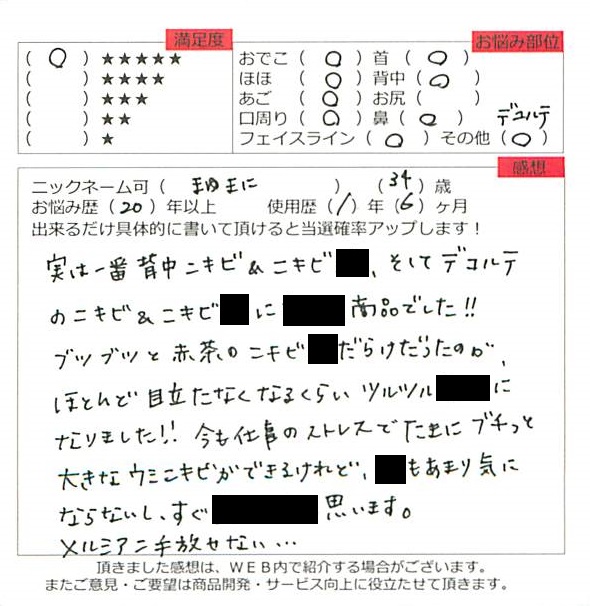 満足度
お悩み部位
(○)★★★★★
( )★★★★
( )★★★
( )★★
( )★
おでこ(○)首(○)
ほほ(○)背中(○)
あご(○)お尻( )
口周り(○)鼻(○) デコルテ
フェイスライン(○)その他(○)
感想
ニックネーム可( まに ) (34)歳
お悩み歴(20)年以上 使用歴(1)年(6)ヶ月
出来るだけ具体的に書いて頂けると当選確率アップします!
実は一番背中ニキビ&ニキビ 、そしてデコルテ
のニキビ&ニキビ に 商品でした!!
ブツブツと赤茶のニキビ だらけだったのが、
ほとんど目立たなくなるくらいツルツル に
なりました!!今も仕事のストレスでたまにブチっと
大きなウミニキビができるけれど、 もあまり気に
ならないし、すぐ 思います。
メルミアン手放せない…
頂きました感想は、WEB内で紹介する場合がございます。
またご意見・ご要望は商品開発・サービス向上に役立たせて頂きます。